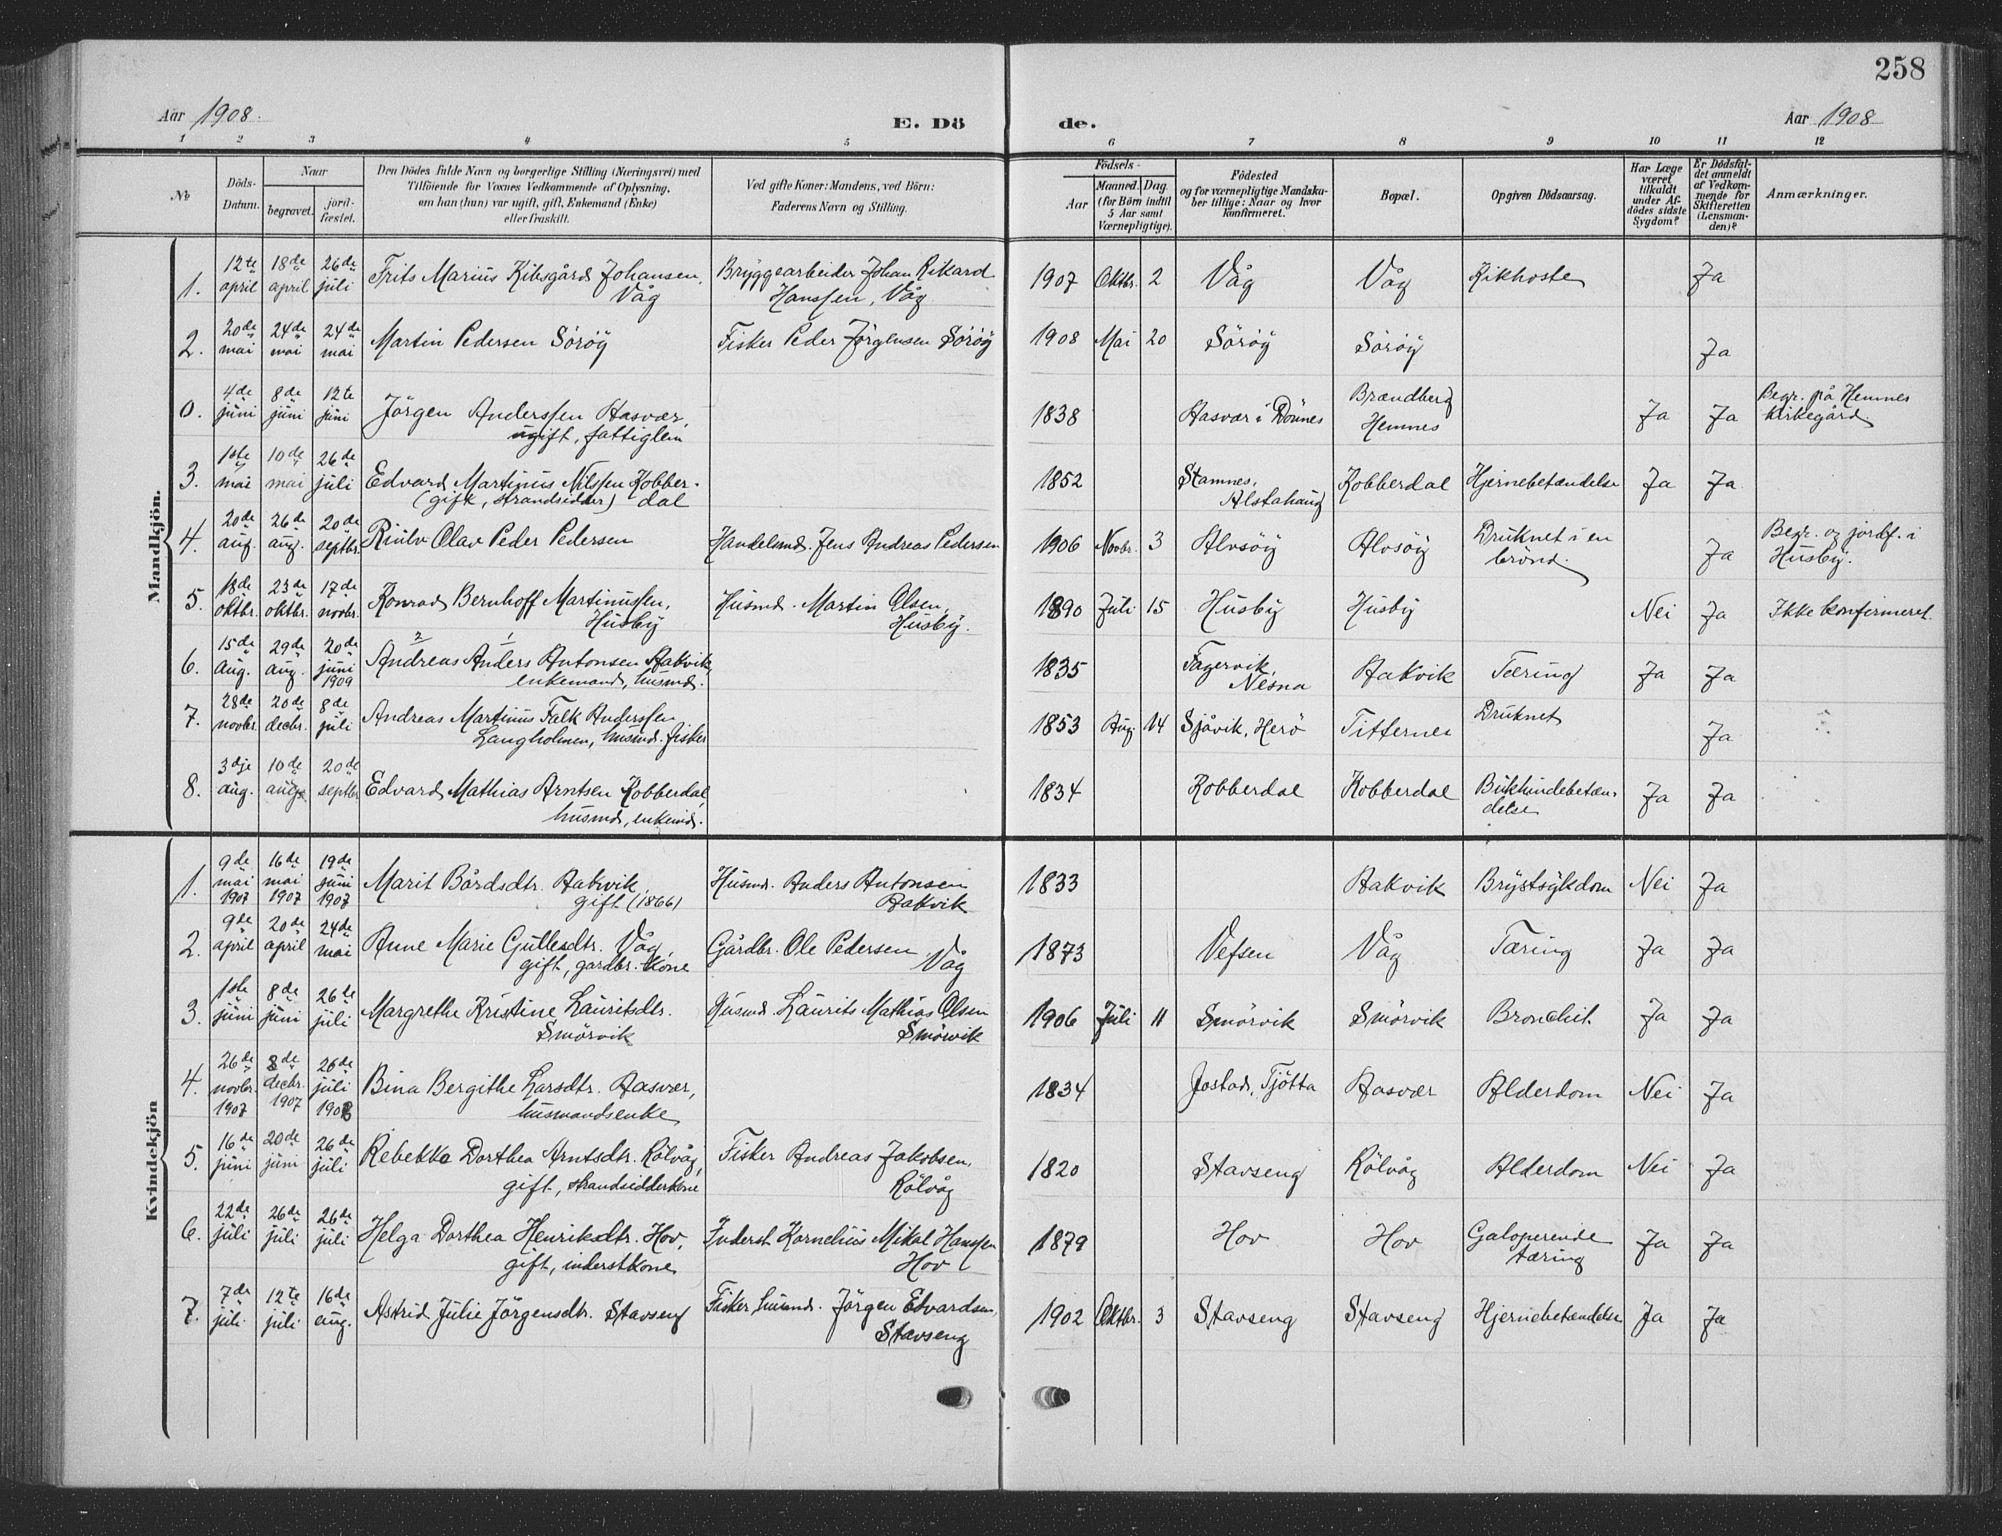 258
Aar 1908. E. Dö de. Aar 1908
1 2 3 4 5 6 7 8 9 10 11 12
No
Döds-Datum.
Naar
begravet.
jord-fæstet.
Den Dödes fulde Navn og borgerlige Stilling (Næringsvei) med
Tilföiende for Voxnes Vedkommende af Oplysning,
om han (hun) var ugift, gift, Enkemand (Enke)
eller fraskilt.
Ved gifte Koner: Mandens, ved Börn:
Faderens Navn og Stilling.
Födsels-
Aar
Maaned. Dag.
(for Börn indtil
5 Aar samt
Værnepligtige).
Födested
og for værnepligtige Mandsku-
ber tillige: Naar og hvor
konfirmeret.
Bopæl.
Opgiven Dödsaarsag.
Har Læge
været
tilkaldt
under Af-
dödes sidste
Sygdom?
Er Dödsfal-
det anmeldt
af Vedkom-
mende for
Skifteretten
(Lensman-
den)?
Anmærkninger.
Mandkjön.
1. 12te april 18de april 26de juli Frits Marius Kibsgård Johansen, Våg Bryggearbeider Johan Rikard Hanssen, Våg 1907 Oktbr. 2 Våg Våg Kikhoste Ja
2. 20de mai 24de mai 24de mai Martin Pedersen Söröy Fisker Peder Jörgensen Söröy 1908 Mai 20 Söröy Söröy Ja
0. 4de juni 8de juni 12te juni Jörgen Anderssen Aasvær, ugift, fattiglem 1838 Aasvær i Dönnes Brændberg Hemnes Ja Ja Begr. på Hemnes kirkegård.
3. 1ste mai 10de mai 26de juli Edvard Martinus Nilssen Kobberdal (gift, strandsidder) 1852 Stamnes, Alstahaug Kobberdal Hjernebetændelse Ja Ja
4. 20de aug. 26de aug. 20de septbr. Olav Peder Pedersen Handelsmd. Jens Andreas Pedersen 1906 Novbr. 3 Alvsöy Alvsöy Druknet i en brönd. Ja Begr. og jordf. i Husby.
5. 18de oktbr. 23de oktbr. 17de novbr. Konrad Bernhoff Martinussen, Husby Husmd. Martin Olsen, Husby. 1890 Juli 15 Husby Husby Nei Ja Ikke konfirmeret.
6. 15de aug. 29de aug. 20de juni 1909 Andreas 2 Anders 1 Antonsen Aakvik, enkemand, husmd. 1835 Fagervik, Nesna Aakvik Tæring Ja Ja
7. 28de novbr. 20de decbr. 8de juli Andreas Martinus Falk Anderssen Langholmen, husmd. fisker 1853 Aug. 14 Sjåvik, Herö Titternes Druknet Ja
8. 3dje aug. 10de aug. 20de septbr Edvard Mathias Arntsen Kobberdal, husmd, enkemd. 1834 Kobberdal Kobberdal Bukhindebetændelse Ja Ja
Kvindekjön
1. 9de mai 1907 16de mai 1907 19de juni 1907 Marit Bårdsdtr. Aakvik, gift (1866) Husmd. Anders Antonsen Aakvik 1833 Aakvik Brystsykdom Nei Ja
2. 9de april 20de april 24de mai Anne Marie Gullesdtr. Våg, gift, gardbr. kone Gårdbr. Ole Pedersen Våg 1873 Vefsen Våg Tæring Ja Ja
3. 1ste juni 8de juni 26te juli Margrethe Kristine Lauritsdtr. Smörvik Husmd. Laurits Mathias Olsen Smörvik 1906 Juli 11 Smörvik Smörvik Bronchit. Ja Ja
4. 26de novbr. 1907 8de decbr. 1907 26de juli 1908 Bina Bergithe Larsdtr. Aasvær, husmandsenke 1834 Jostad, Tjötta Aasvær Alderdom Nei Ja
5. 16de juni 20de juni 26de juli Rebekka Dorthea Arntsdtr. Rölvåg, gift, strandsidderkone Fisker Andreas Jakobsen, Rölvåg 1820 Stavseng Rölvåg Alderdom Nei Ja
6. 22de juli 26de juli 26de juli Helga Dorthea Henriksdtr. Hov, gift, inderstkone Inderst Kornelius Mikal Hanssen Hov 1879 Hov Hov Galoperende tæring Ja Ja
7. 7de juli 12te juli 16de aug. Astrid Julie Jörgensdtr. Stavseng Fisker, husmd. Jörgen Edvardsen, Stavseng 1902 Oktbr. 3 Stavseng Stavseng Hjernebetændelse Ja Ja